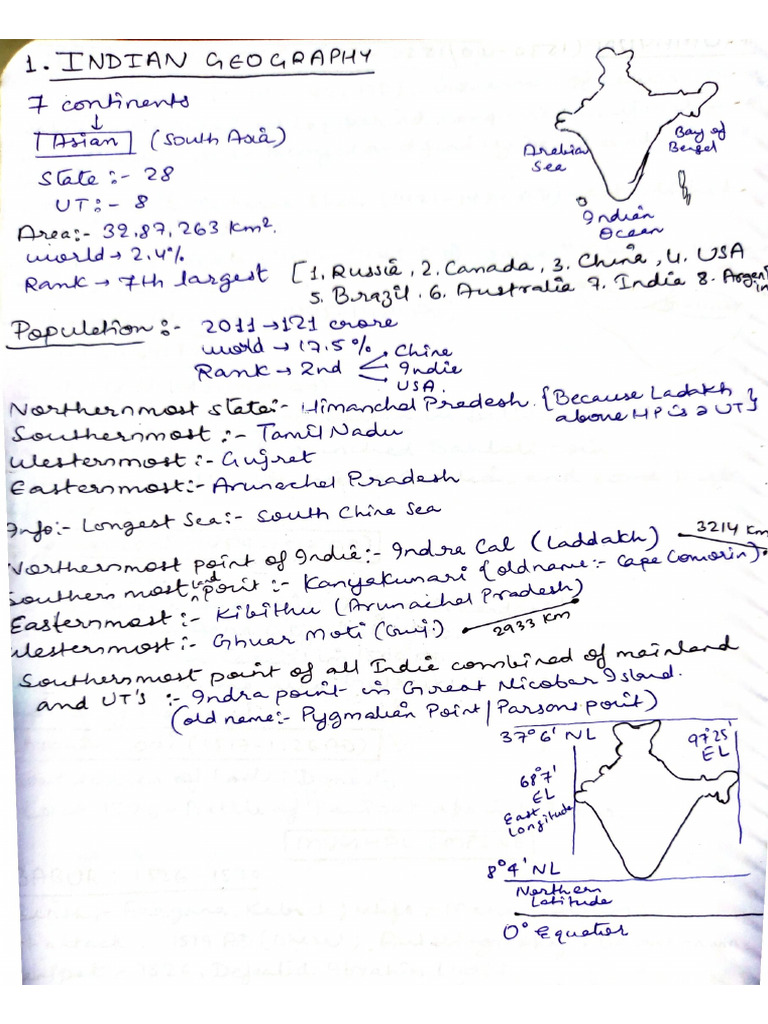 1. INDIAN GEOGRAPHY
7 continents
↓
Asian (South Asia)
State :- 28
UT :- 8
Area:- 32,87,263 Km².
world → 2.4%
Rank → 7th largest [1. Russia, 2. Canada, 3. China, 4. USA
5. Brazil. 6. Australia 7. India 8. Argen
in
Arabian
Sea
Bay of
Bengal
Indian
Ocean
Population :- 2011 → 121 crore
world → 17.5%
Rank → 2nd
China
India
USA.
Northernmost state:- Himanchal Pradesh. {Because Ladakh
above HP is a UT}
Southernmost :- Tamil Nadu
Westernmost :- Gujrat
Easternmost:- Arunachal Pradesh
Info:- Longest Sea:- South China Sea
Northernmost point of India:- Indra Cal (Laddakh) 3214 Km
Southern most land point :- Kanyakumari {old name:- Cape Comorin)
Easternmost :- Kibithu (Arunachal Pradesh)
Westernmost :- Ghuar Moti (Guj.) 2933 Km
Southernmost point of all India combined of mainland
and UT's :- Indra point in Great Nicobar Island.
(old name:- Pygmalian Point / Parsons point)
37°6' NL
97°25'
EL
68°7'
EL
East
Longitude
8°4' NL
Northern
Latitude
0° Equator